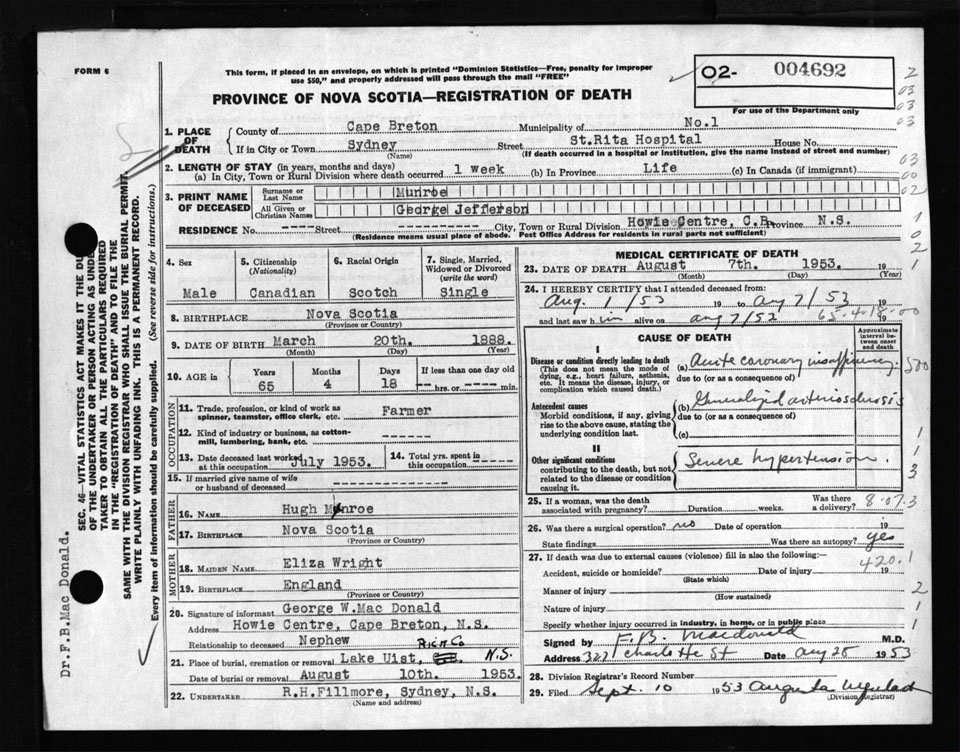 FORM 6
This form, if placed in an envelope, on which is printed "Dominion Statistics—Free, penalty for improper
use $50," and properly addressed will pass through the mail "FREE"
PROVINCE OF NOVA SCOTIA—REGISTRATION OF DEATH
02- 004692
For use of the Department only
1. PLACE OF DEATH
County of Cape Breton Municipality of No.1
If in City or Town Sydney Street St.Rita Hospital House No.
(Name) (If death occurred in a hospital or institution, give the name instead of street and number)
2. LENGTH OF STAY (in years, months and days)
(a) In City, Town or Rural Division where death occurred 1 week (b) In Province Life (c) In Canada (if immigrant)
3. PRINT NAME OF DECEASED
Surname or Last Name Munroe
All Given or Christian Names George Jefferson
RESIDENCE No. ----- Street ---------- City, Town or Rural Division Howie Centre, C.B. Province N.S.
(Residence means usual place of abode. Post Office Address for residents in rural parts not sufficient)
4. Sex
Male
5. Citizenship
(Nationality)
Canadian
6. Racial Origin
Scotch
7. Single, Married,
Widowed or Divorced
(write the word)
Single
8. BIRTHPLACE Nova Scotia
(Province or Country)
9. DATE OF BIRTH March 20th. 1888.
(Month) (Day) (Year)
10. AGE in Years Months Days If less than one day old
65 4 18 --- hrs. or --- min.
OCCUPATION
11. Trade, profession, or kind of work as
spinner, teamster, office clerk, etc. Farmer
12. Kind of industry or business, as cotton-
mill, lumbering, bank, etc. -------
13. Date deceased last worked
at this occupation July 1953.
14. Total yrs. spent in
this occupation -----
15. If married give name of wife
or husband of deceased ------------
FATHER
16. NAME Hugh Munroe
17. BIRTHPLACE Nova Scotia
(Province or Country)
MOTHER
18. MAIDEN NAME Eliza Wright
19. BIRTHPLACE England
(Province or Country)
20. Signature of informant George W.Mac Donald
Address Howie Centre, Cape Breton, N.S.
Relationship to deceased Nephew
Rich Co
21. Place of burial, cremation or removal Lake Uist, N.S.
Date of burial or removal August 10th. 1953.
22. UNDERTAKER R.H.Fillmore, Sydney, N.S.
(Name and address)
MEDICAL CERTIFICATE OF DEATH
23. DATE OF DEATH August 7th. 1953. 19
(Month) (Day) (Year)
24. I HEREBY CERTIFY that I attended deceased from:
Aug 1/53 19 to Aug 7/53 19
and last saw him alive on Aug 7/53 19
65-4-18-00
CAUSE OF DEATH
Approximate
interval be-
tween onset
and death
I
Disease or condition directly leading to death
(This does not mean the mode of
dying, e.g., heart failure, asthenia,
etc. It means the disease, injury, or
complication which caused death.)
(a) Acute coronary insufficiency
due to (or as a consequence of)
Antecedent causes
Morbid conditions, if any, giving
rise to the above cause, stating the
underlying condition last.
(b) Generalized arteriosclerosis
due to (or as a consequence of)
(c)
II
Other significant conditions
contributing to the death, but not
related to the disease or condition
causing it.
Severe hypertension.
25. If a woman, was the death
associated with pregnancy? Duration weeks. Was there
a delivery?
8-07.3
26. Was there a surgical operation? no Date of operation 19
State findings Was there an autopsy? yes
27. If death was due to external causes (violence) fill in also the following:
420.1
Accident, suicide or homicide? Date of injury 19
(State which)
Manner of injury
(How sustained)
Nature of injury
Specify whether injury occurred in industry, in home, or in public place
Signed by F.B. Macdonald M.D.
Address 327 Charlotte St Date Aug 28 1953
28. Division Registrar's Record Number
29. Filed Sept. 10 1953 Augusta
(Division Registrar)
SEC. 46—VITAL STATISTICS ACT MAKES IT THE
OF THE UNDERTAKER OR PERSON ACTING AS
TAKER TO OBTAIN ALL THE PARTICULARS REQUIRED
IN THE "REGISTRATION OF DEATH" AND TO FILE THE
SAME WITH THE DIVISION REGISTRAR WHO SHALL ISSUE THE BURIAL PERMIT.
WRITE PLAINLY WITH UNFADING INK. THIS IS A PERMANENT RECORD.
Every item of information should be carefully supplied. (See reverse side for instructions.)
Dr.F.B.Mac Donald.
2
03
03
03
03
00
02
1
0
2
1
500
1
1
3
1
2
1
1